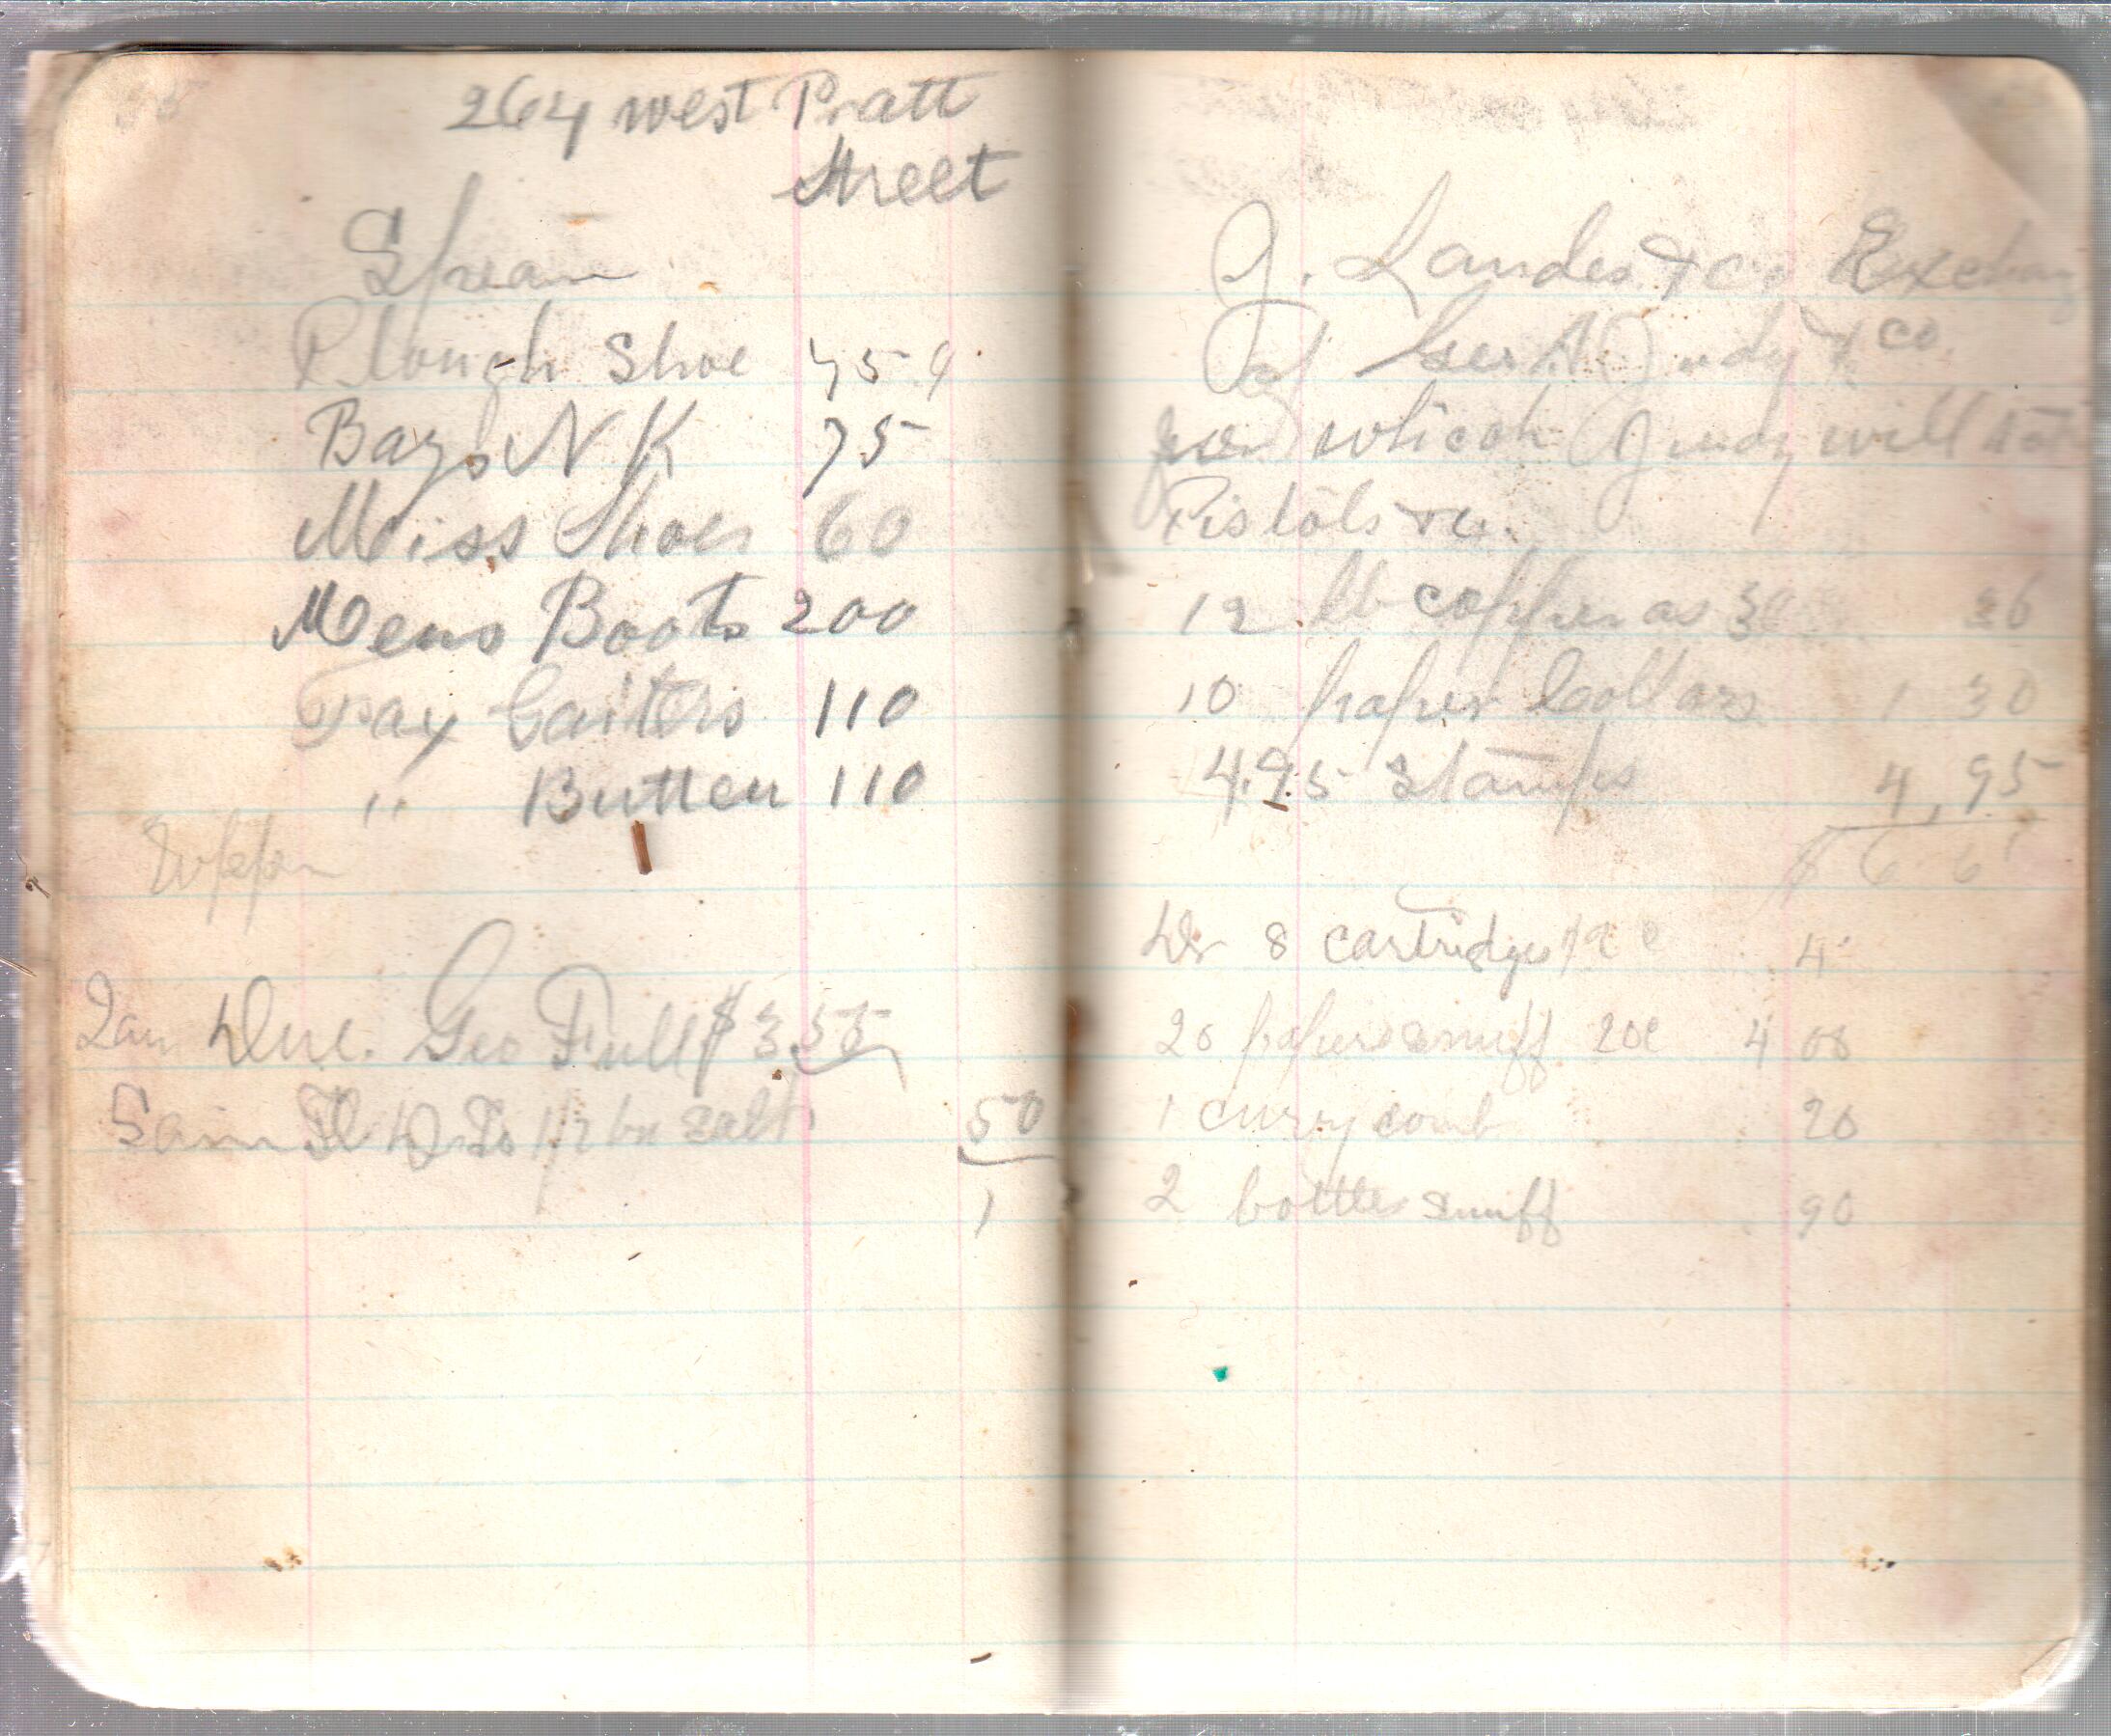 264 west Pratt
Street
Plough Shoe 75
Boys N K 75
Miss Shoes 60
Mens Boots 200
Gaiters 110
" Button 110
Due. Geo Full $3.55
Sam 1/2 bu salt 50
1
J. Landes & co Exchan
of Geo A Judy & co
for which Judy will
Pistols &c.
12 lb copperas 3c 36
10 paper Collars 1 30
4.95 Stamps 4,95
$ 6 61
Dr 8 cartridges
20 papers snuff 20c 4 00
1 curry comb 20
2 bottles snuff 90